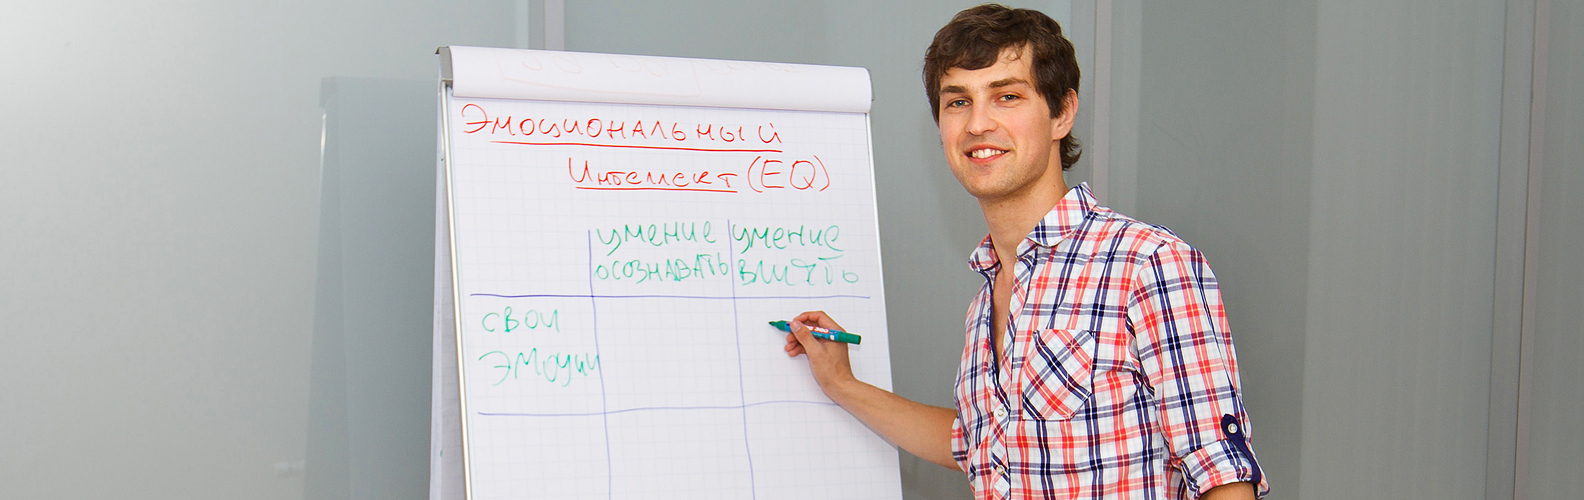 Эмоциональный
Интеллект (EQ)
умение умение
осознавать влиять
свои
эмоции